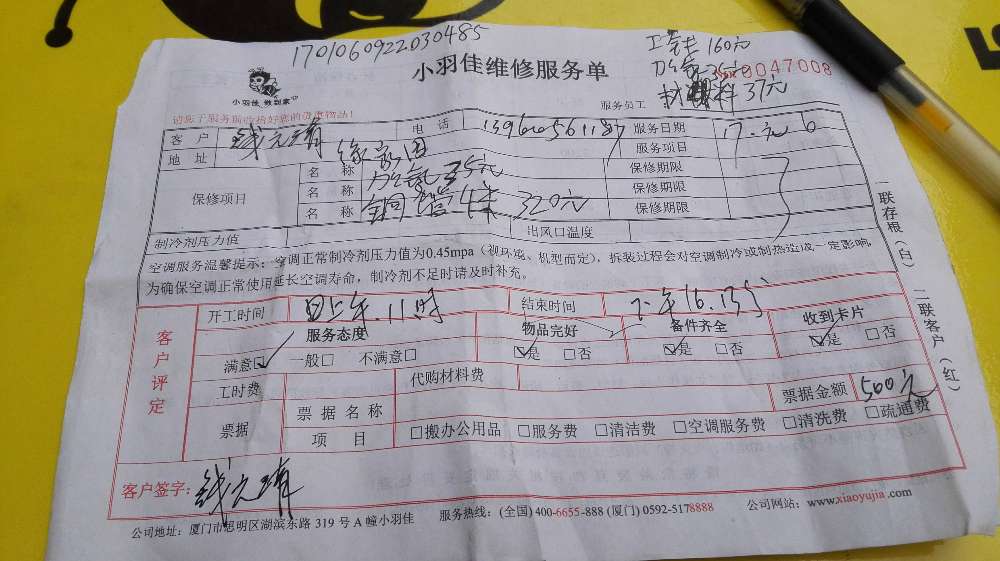 170106092203​0485
工 160元
加氟 35元
材料 37元
小羽佳维修服务单
No 0047008
小羽佳 做到家
服务员工
请您于服务前收拾好您的贵重物品!
客 户 钱元靖 电 话 服务日期 17.元.6
地 址 缘家园 服务项目
保修项目
名 称 加氟 35元 保修期限
名 称 保修期限
名 称 铜管4米 320元 保修期限
制冷剂压力值 出风口温度
空调服务温馨提示:空调正常制冷剂压力值为0.45mpa(视环境、机型而定),拆装过程会对空调制冷或制热造成一定影响,
为确保空调正常使用延长空调寿命,制冷剂不足时请及时补充。
客户评定
开工时间 上午.11时 结束时间 下午16.15分
服务态度 物品完好 备件齐全 收到卡片
满意☑ 一般□ 不满意□ ☑是 □否 ☑是 □否 ☑是 □否
工时费 代购材料费
票据 票据名称 票据金额 500元
项 目 □搬办公用品 □服务费 □清洁费 □空调服务费 □清洗费 □疏通费
客户签字: 钱元靖
一联存根(白) 二联客户(红)
公司地址:厦门市思明区湖滨东路 319 号 A 幢小羽佳 服务热线:(全国) 400-6655-888 (厦门) 0592-5178888 公司网站:www.xiaoyujia.com